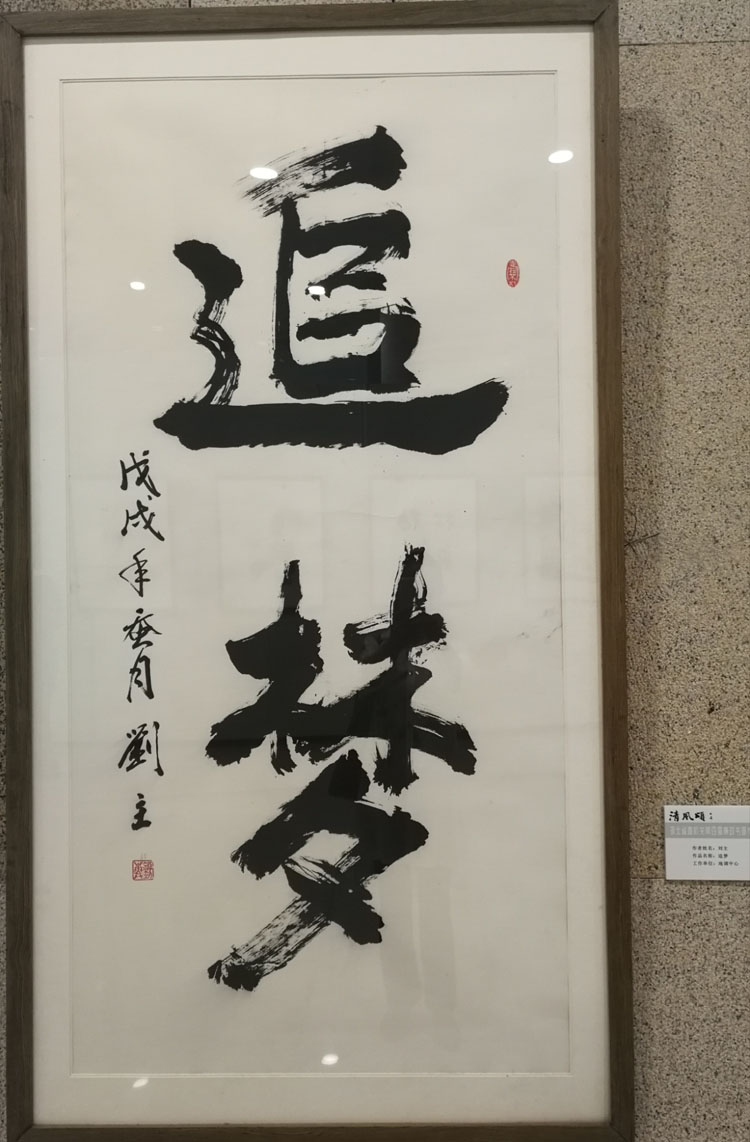 追
梦
戊戌年月劉主
清风颂：
作者姓名：刘主
作品名称：追梦
工作单位：中心